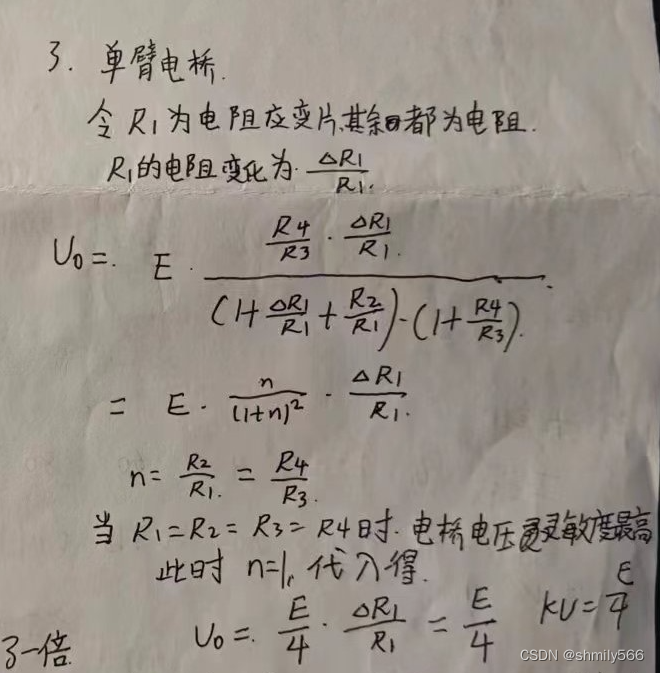 3. 单臂电桥.
令 R1 为电阻应变片,其余都为电阻.
R1的电阻变化为 ΔR1/R1.
U0=. E · (R4/R3 · ΔR1/R1.) / ((1+ΔR1/R1+R2/R1)·(1+R4/R3)).
= E · n/(1+n)² · ΔR1/R1.
n= R2/R1. = R4/R3.
当 R1=R2=R3=R4时. 电桥电压灵敏度最高
此时 n=1, 代入得.
U0=. E/4 · ΔR1/R1 = E/4 KU=E/4
了一倍
CSDN @shmily566